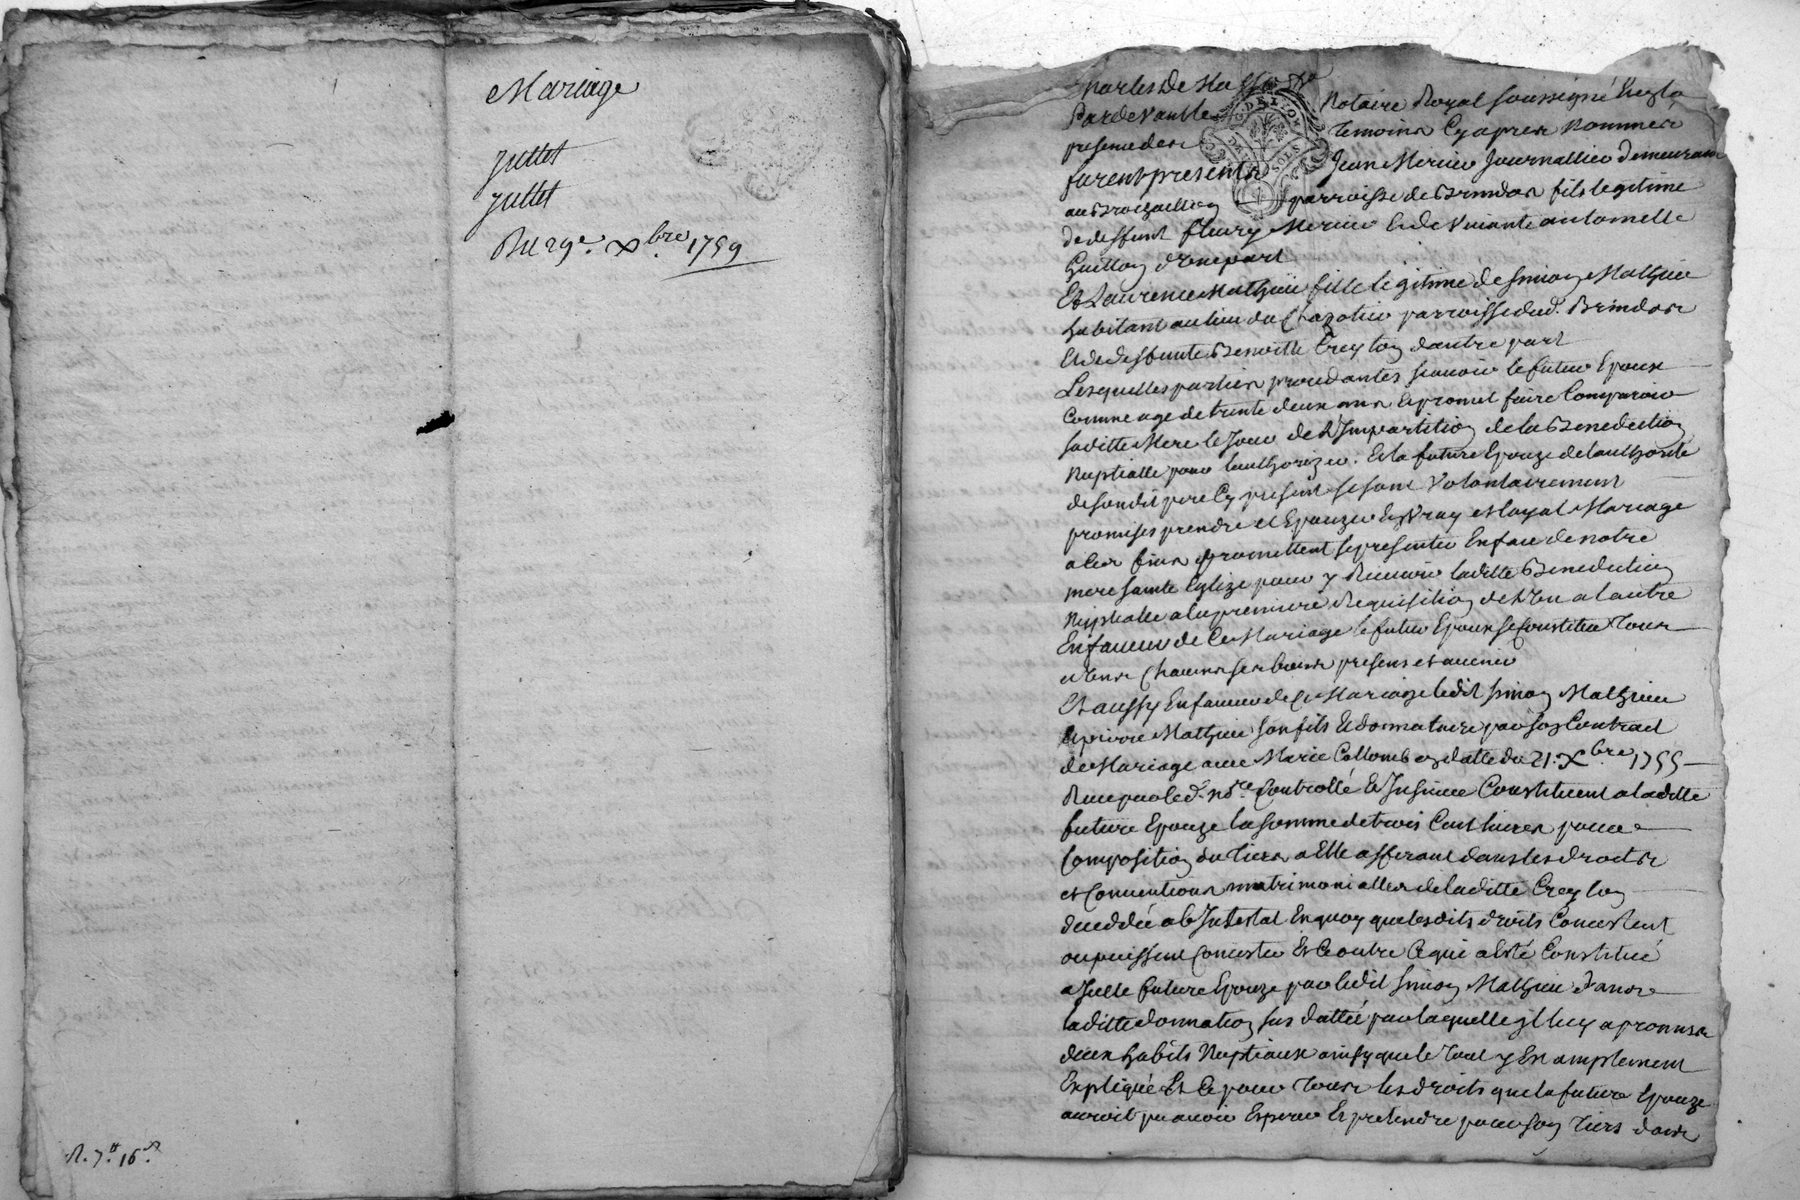 Mariage
Juttet
Juttet
Du 29e. Xbre 1759
R. 7tt 16s
Pardevant le Notaire Royal soussigné Et ez la
presence des Temoins Cy apres Nommés
furent presents Jean Mercier Journallier demeurant
au Brochaillon parroisse de Brindas fils legitime
de deffunt fleury Mercier Et de Vivante anthomette
Guillon d'Une part
Et Laurence Mathieu fille legitime de simon Mathieu
habitant au lieu du Chazotier parroisse dud. Brindas
Et de deffunte Benoitte Creyton d'autre part
Lesquelles parties procedantes scavoir le futur Epoux
Comme age de trente deux ans Et promet faire Comparoir
saditte Mere le Jour de L'Impartition de la Benediction
Nuptialle pour lauthorizer. Et la future Epouze de lauthorité
de sondit pere Cy present se sont Volontairement
promises prendre et Epouzer En Vray et Loyal Mariage
a Ces fins promettent se presenter En face de notre
mere sainte Eglize pour y Recevoir laditte Benediction
Nuptialle a la premiere Requisition de L'Un a l'autre
En faveur de Ce Mariage le futur Epoux se Constitue Tous
et Uns Chacuns ses biens presens et avenir
Et aussy En faveur de Ce Mariage ledit simon Mathieu
Et pierre Mathieu son fils Et donnataire par son Contract
de Mariage avec Marie Collomb en datte du 21. Xbre 1755
Receu par led. nore Controllé Et Insinué Constituent a laditte
future Epouze la somme de trois Cent livres pour
Composition du Tiers a Elle afferant dans les droits
et Conventions matrimonialles de laditte Creyton
decedée ab Intestat En quoy que lesdits droits Concistent
ou puissent Concister Et Ce outre Ce qui a Eté Constitué
a Icelle future Epouze par ledit simon Mathieu dans
laditte donnation sus dattée par laquelle il luy a promis
deux habits Nuptiaux ainsy que le Tout y Est amplement
Expliqué Et Ce pour Tous les droits que la future Epouze
auroit pu avoir Esperer Et pretendre pour son Tiers dans